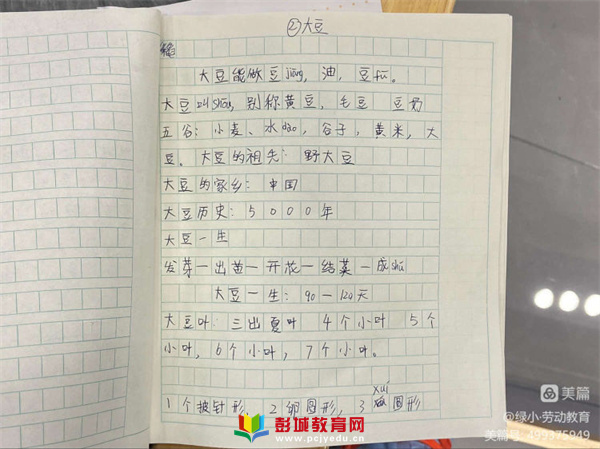 ②大豆
大豆能做豆jiāng，油，豆fǔ。
大豆 shǒng，别称黄豆，毛豆 豆奶
五谷：小麦、水dào，谷子，黄米，大
豆。大豆的祖先：野大豆
大豆的家乡：中国
大豆历史：5000年
大豆一生
发芽一出苗一开花一结菜一成shú
大豆一生：90一120天
大豆叶：三出夏叶 4个小叶 5个
小叶，6个小叶，7个小叶。
xuí
1个披针形，2卵圆形，3 圆形
彭城教育网
www.pcjyedu.cn
美篇
@绿小·劳动教育
美篇号 499375949